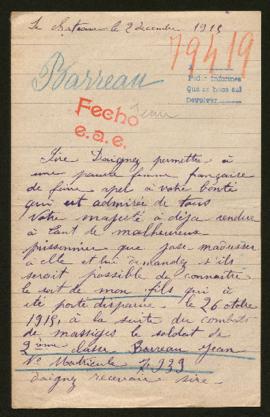 Le chateau le 2 decembre 1915
79419
Barreau
Jean
Pedir informes
Que se haga así
devolver
Fecho
e.a.e.
Sire Daignez permettre à
une pauvre femme française
de faire apel à votre bonté
qui est admirée de tous
Votre magesté à déja rendue
à tant de malheureux
prisonnier que jose m'adisser
à elle et lui demander s'ils
seroit possible de connaitre
le sort de mon fils qui à
été porté disparue le 26 octbre
1915, à la suite du combats
de massiges le soldat de
2ème classe Barreau Jean
No Matricule 7.939
Daignez recevoir sire